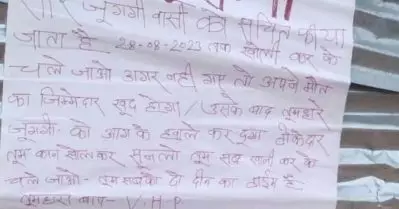 सारे जुग्गी वासी को सुचित कीया
जाता है 28-08-2023 तक खाली कर के
चले जाओ अगर नही गए तो अपने मौत
का जिम्मेदार खुद होगा / उसके बाद तुम्हारे
जुग्गी को आग के हवाले कर दुगा ठेकेदार
तुम कान खोलकर सुनलो तुम सब खाली कर के
चले जाओ तुम सबको दो दीन का टाईम है
तुम्हारा बाप - V.H.P